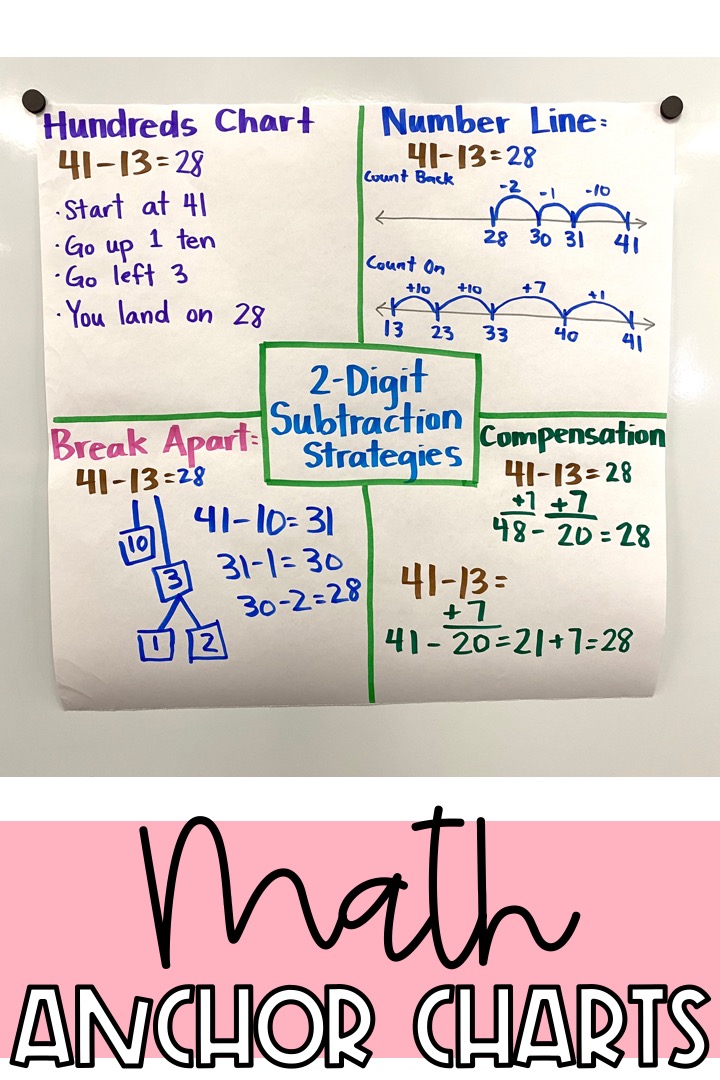 Hundreds Chart
41-13=28
·Start at 41
·Go up 1 ten
·Go left 3
·You land on 28
Number Line:
41-13=28
Count Back
-2 -1 -10
28 30 31 41
Count On
+10 +10 +7 +1
13 23 33 40 41
2-Digit
Subtraction
Strategies
Break Apart:
41-13=28
10
3
1 2
41-10=31
31-1=30
30-2=28
Compensation
41-13=28
+7 +7
48-20=28
41-13=
+7
41-20=21+7=28
Math
ANCHOR CHARTS